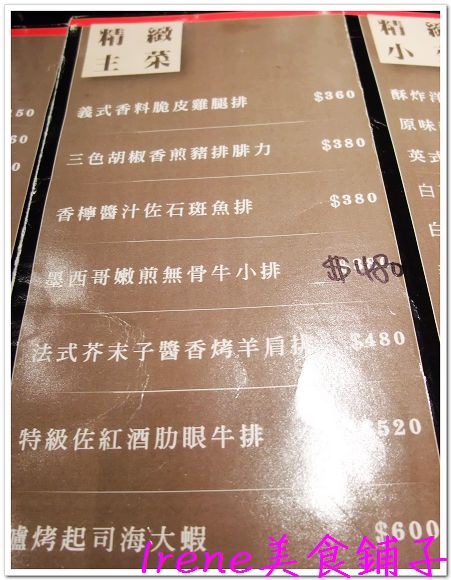 精緻
主菜
義式香料脆皮雞腿排 $360
三色胡椒香煎豬排腓力 $380
香檸醬汁佐石斑魚排 $380
墨西哥嫩煎無骨牛小排 $480
法式芥末子醬香烤羊肩排 $480
特級佐紅酒肋眼牛排 $520
爐烤起司海大蝦 $600
精緻
小
酥炸洋
原味
英式
白
白
250
60
0
Irene美食鋪子